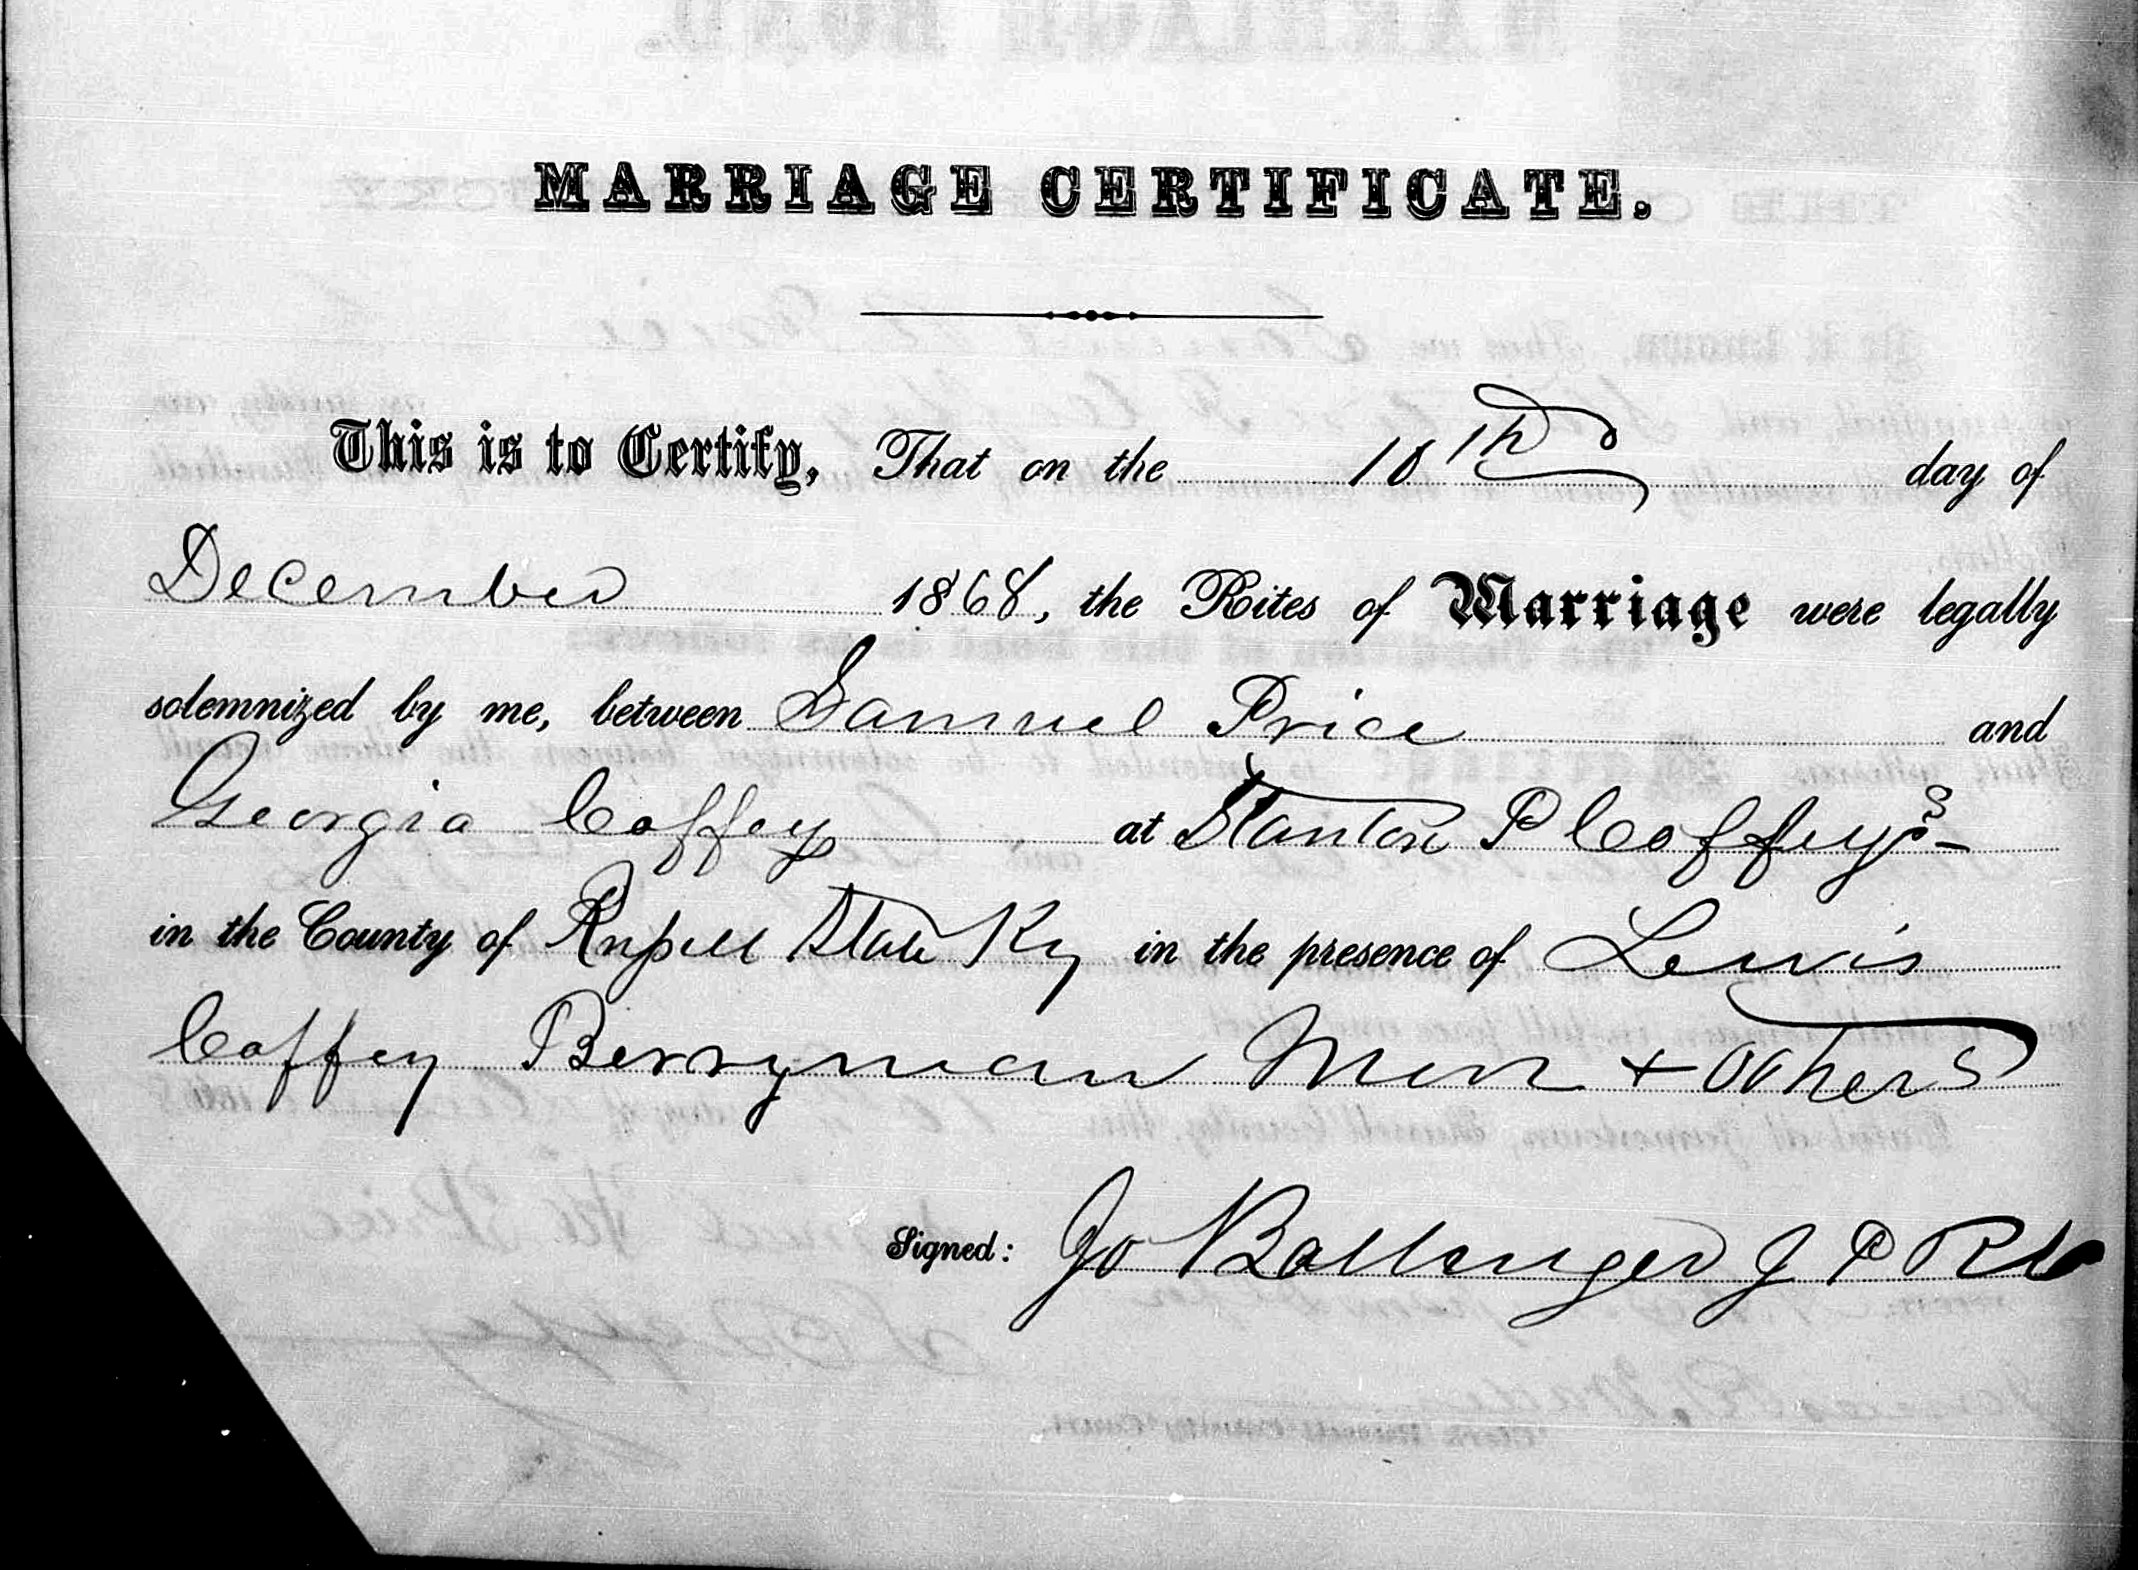 MARRIAGE CERTIFICATE.
This is to Certify, That on the 10th day of
December 1868, the Rites of Marriage were legally
solemnized by me, between Samuel Price and
Georgia Coffey at Stanton P Coffeys
in the County of Russell State Ky in the presence of Lewis
Coffey Berryman & Others
Signed: Jo Ballenger J P R